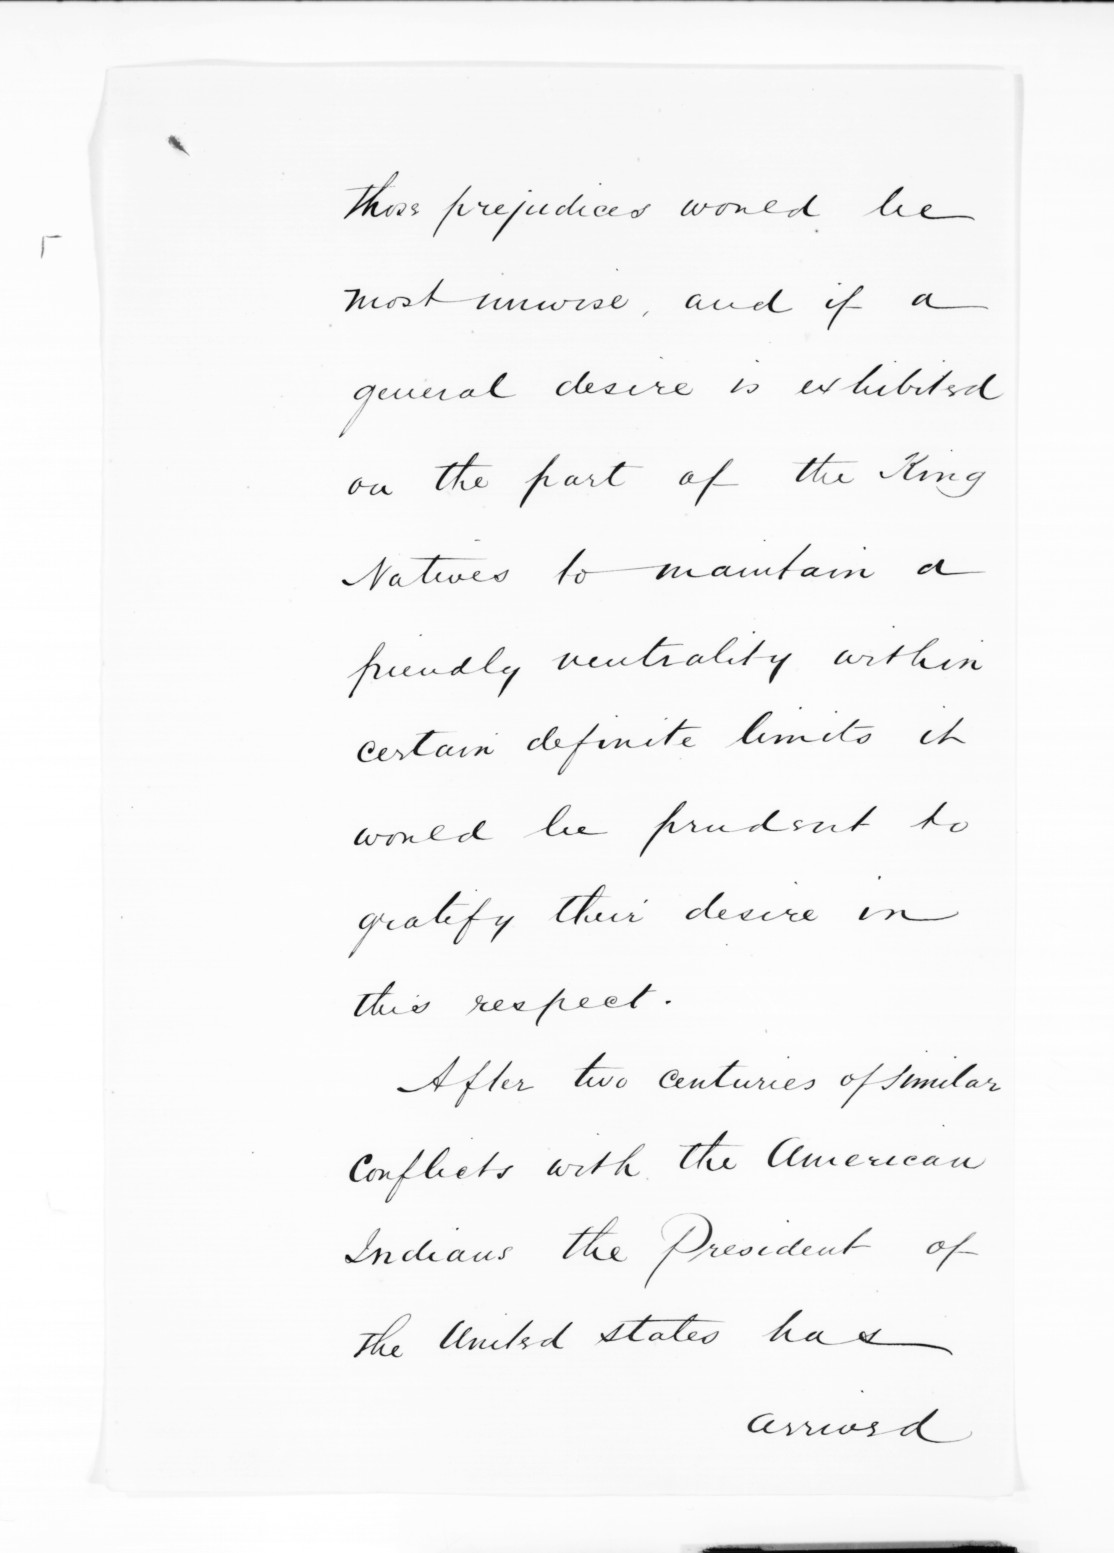 those prejudices would be
most unwise, and if a
general desire is exhibited
on the part of the King
Natives to maintain a
friendly neutrality within
certain definite limits it
would be prudent to
gratify their desire in
this respect.
After two centuries of similar
Conflicts with the American
Indians the President of
the United States has
arrived